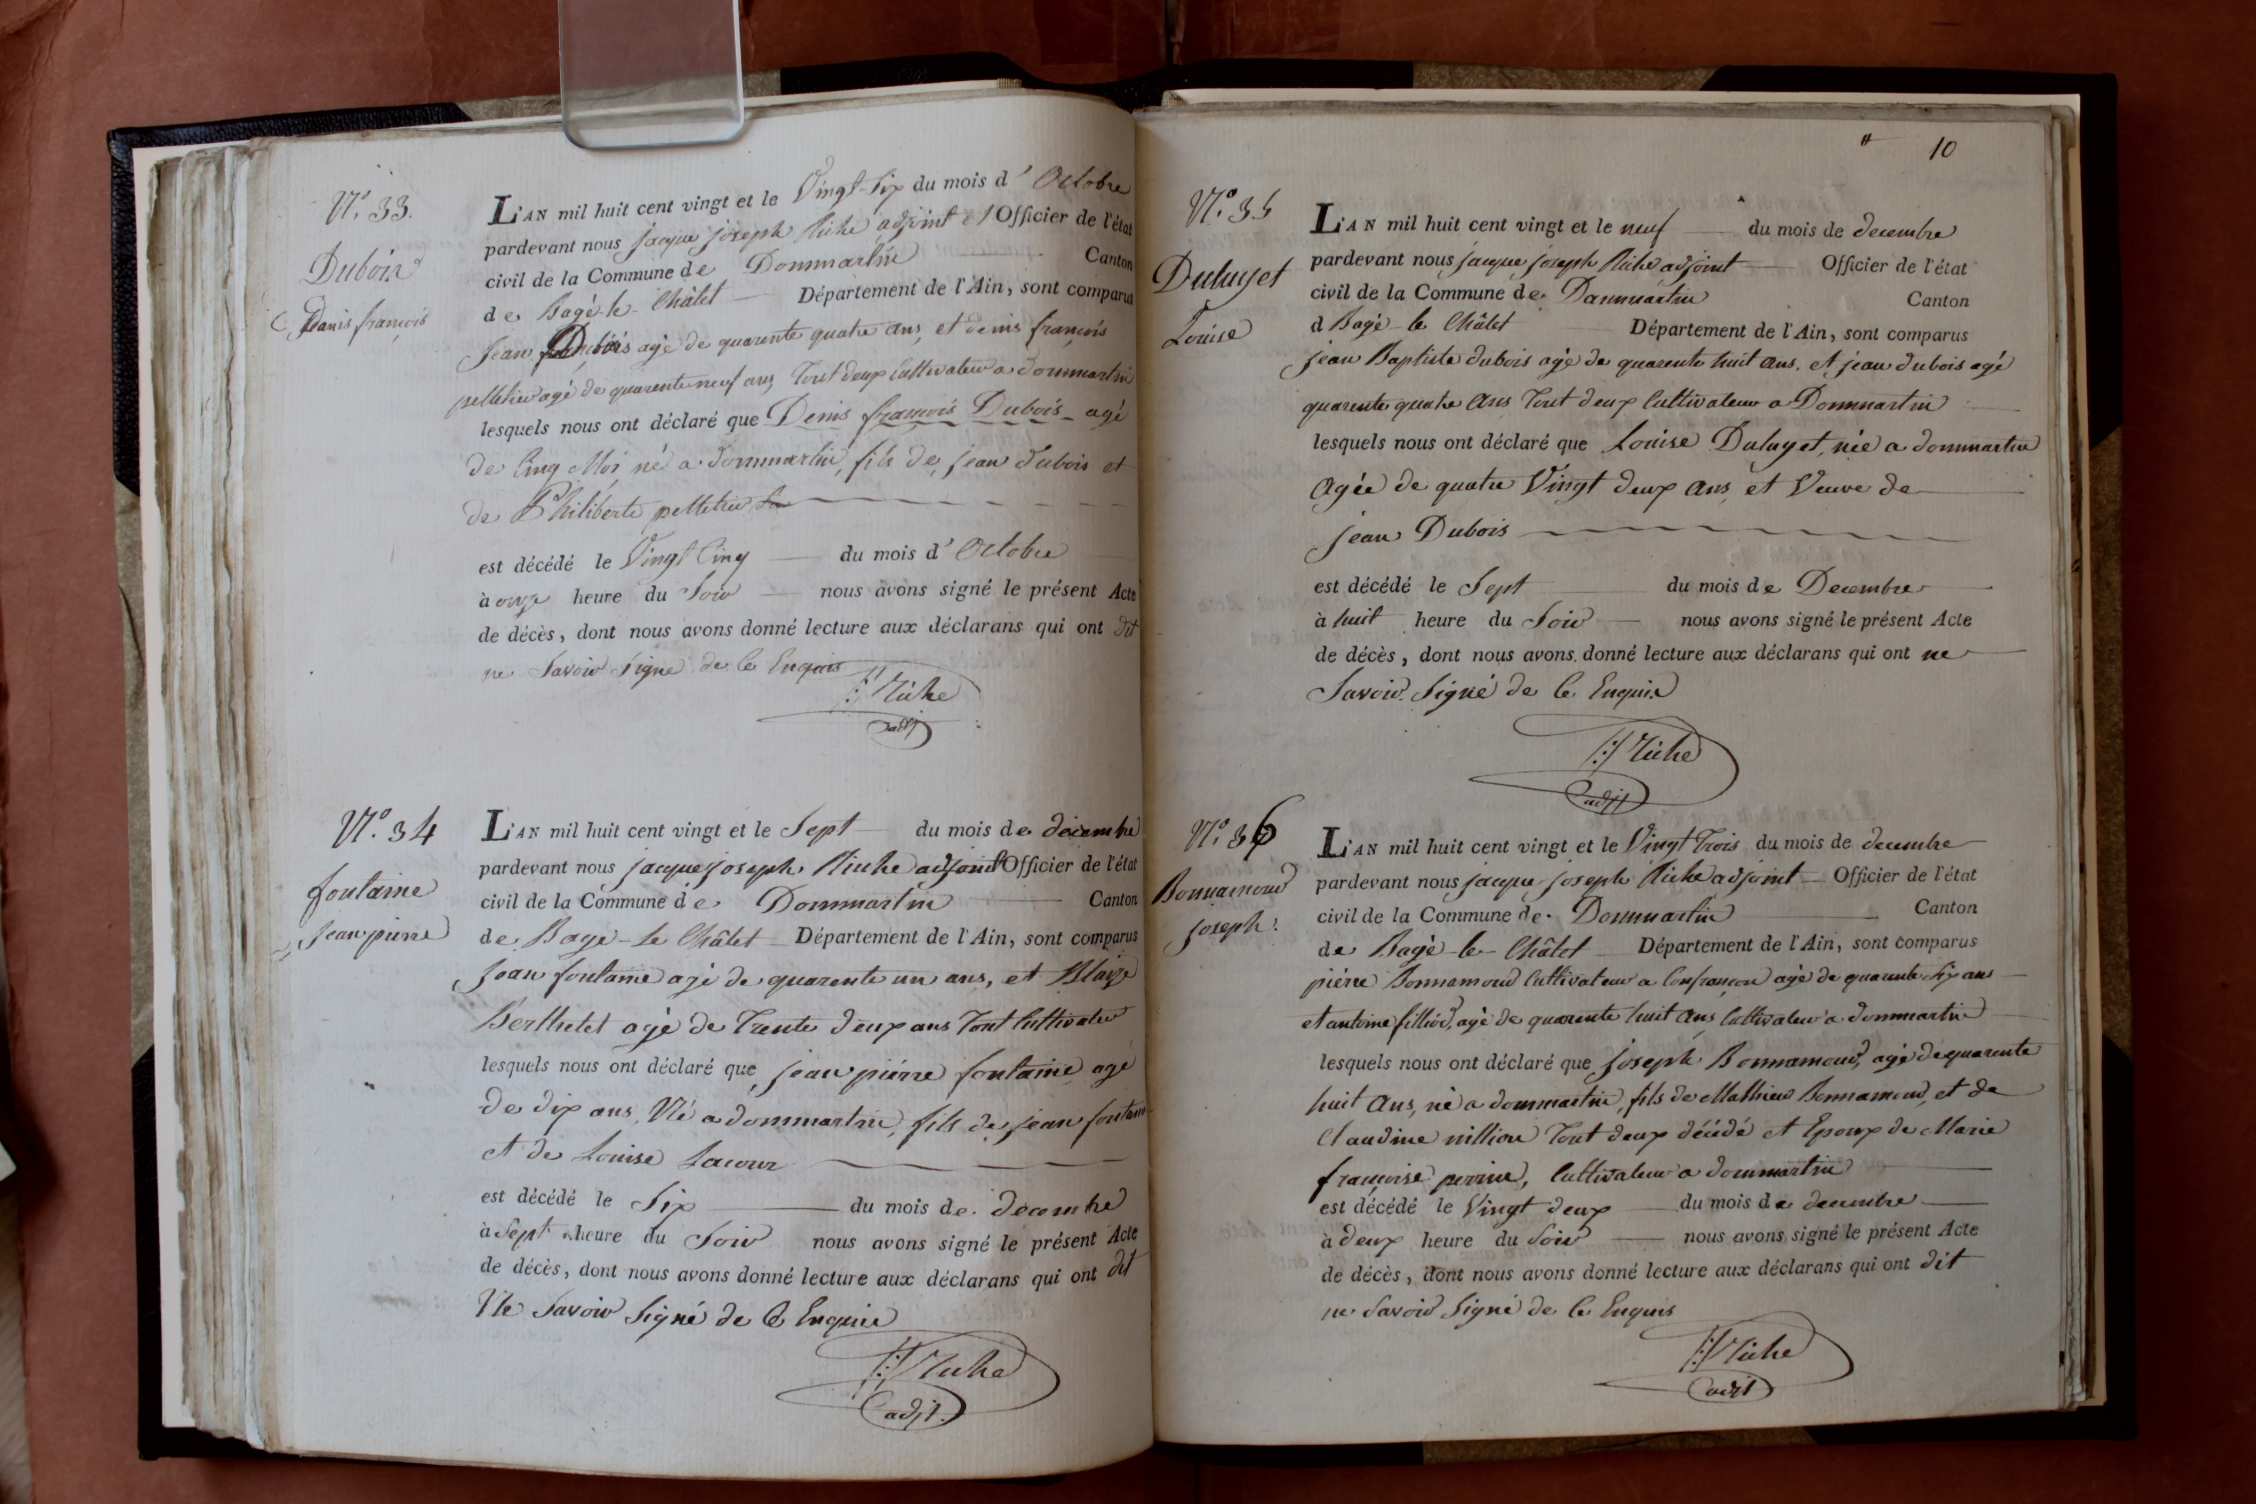 N.° 33.
Dubois
Danis françois
L'AN mil huit cent vingt et le Vingt-Six du mois d' Octobre
pardevant nous jacque joseph Riche adjoint et l'Officier de l'état
civil de la Commune de Dommartin Canton
de Bagé-le-Châtel Département de l'Ain, sont comparus
Jean Dubois agé de quarente quatre ans, et denis françois
pelletier agé de quarente neuf ans, Tout deux Cultivateur a dommartin
lesquels nous ont déclaré que Denis françois Dubois agé
de Cinq Moi né a dommartin, fils de jean dubois et
de Philiberte pelletier
est décédé le Vingt Cinq du mois d' Octobre
à onze heure du Soir nous avons signé le présent Acte
de décès, dont nous avons donné lecture aux déclarans qui ont dit
ne Savoir Signe de Ce Enquis
Riche
adjt
N.° 34
fontaine
Jean pierre
L'AN mil huit cent vingt et le Sept du mois de decembre
pardevant nous jacque joseph Riche adjoint Officier de l'état
civil de la Commune de Dommartin Canton
de Bagé-le Châtel Département de l'Ain, sont comparus
Jean fontaine agé de quarente un ans, et Blaize
Berthelet agé de Trente deux ans Tout Cultivateur
lesquels nous ont déclaré que jean piérre fontaine agé
de dix ans, Né a dommartin, fils de jean fontain
et de Louise Lacour
est décédé le Six du mois de decembre
à Sept heure du Soir nous avons signé le présent Acte
de décès, dont nous avons donné lecture aux déclarans qui ont dit
Ne Savoir Signé de Ce Enquis
Riche
adjt.
10
N.° 35
Duluyet
Louise
L'AN mil huit cent vingt et le neuf du mois de decembre
pardevant nous jacque joseph Riche adjoint Officier de l'état
civil de la Commune de Dommartin Canton
d Bagé-le Châtel Département de l'Ain, sont comparus
jean Baptiste dubois agé de quarente huit ans, et jean dubois agé
quarente quatre Ans Tout deux Cultivateur a Dommartin
lesquels nous ont déclaré que Louise Duluyet, née a dommartin
Agée de quatre Vingt deux ans, et Veuve de
jean Dubois
est décédé le Sept du mois de Decembre
à huit heure du Soir nous avons signé le présent Acte
de décès, dont nous avons donné lecture aux déclarans qui ont ne
Savoir Signé de Ce Enquis
Riche
adjt
N.° 36
Bonnamoud
joseph
L'AN mil huit cent vingt et le Vingt Trois du mois de decembre
pardevant nous jacque joseph Riche adjoint Officier de l'état
civil de la Commune de Dommartin Canton
de Bagé-le-Châtel Département de l'Ain, sont comparus
piérre Bonnamoud Cultivateur a Confrançon agé de quarente Six ans
et antoine filliod, agé de quarente huit Ans Cultivateur a dommartin
lesquels nous ont déclaré que joseph Bonnamoud, agé de quarente
huit Ans, né a dommartin, fils de Mathieu Bonnamoud, et de
Claudine nillion Tout deux décédé et Epoux de Marie
françoise perrine, Cultivateur a dommartin
est décédé le Vingt deux du mois de decembre
à deux heure du Soir nous avons signé le présent Acte
de décès, dont nous avons donné lecture aux déclarans qui ont dit
ne Savoir Signé de Ce Enquis
Riche
adjt